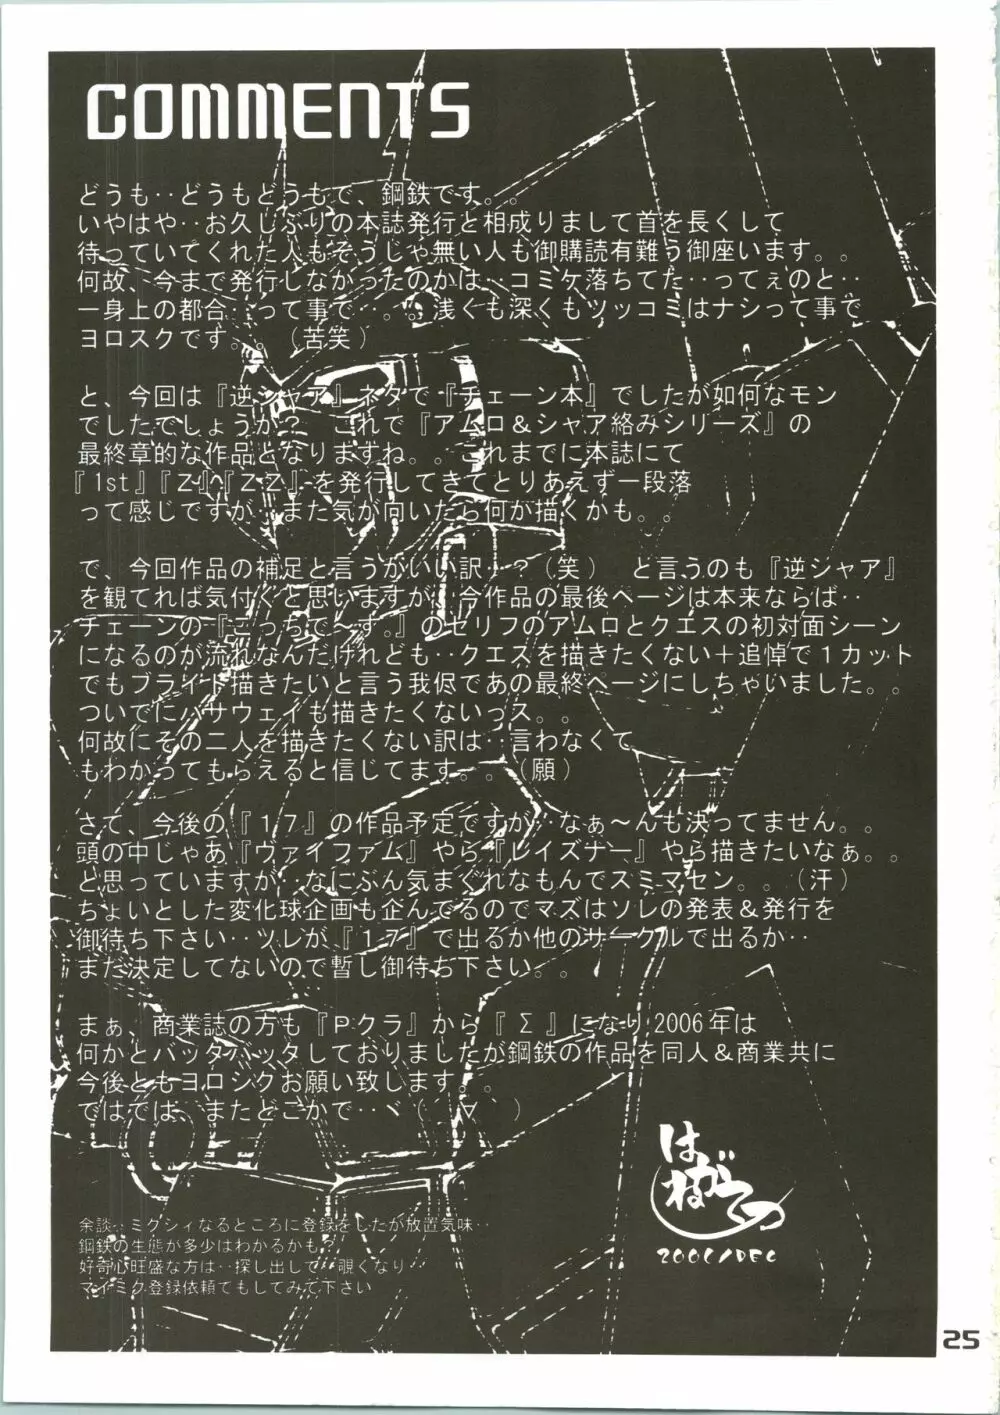 COMMENTS
どうも‥どうもどうもで、鋼鉄です。。
いやはや‥お久しぶりの本誌発行と相成りまして首を長くして
待っていてくれた人もそうじゃ無い人も御購読有難う御座います。。
何故、今まで発行しなかったのかは‥コミケ落ちてた‥ってぇのと‥
一身上の都合‥って事で‥。。浅くも深くもツッコミはナシって事で
ヨロスクです。。（苦笑）
と、今回は『逆シャア』ネタで『チェーン本』でしたが如何なモン
でしたでしょうか？　これで『アムロ＆シャア絡みシリーズ』の
最終章的な作品となりますね。。これまでに本誌にて
『1st』『Ｚ』『ＺＺ』を発行してきてとりあえず一段落
って感じですが‥また気が向いたら何か描くかも。。
で、今回作品の補足と言うかいい訳‥？（笑）　と言うのも『逆シャア』
を観てれば気付くと思いますが‥今作品の最後ページは本来ならば‥
チェーンの『こっちで～す。』のセリフのアムロとクエスの初対面シーン
になるのが流れなんだけれども‥クエスを描きたくない＋追悼で１カット
でもブライト描きたいと言う我侭であの最終ページにしちゃいました。。
ついでにハサウェイも描きたくないっス。。
何故にその二人を描きたくない訳は‥言わなくて
もわかってもらえると信じてます。。（願）
さて、今後の『１７』の作品予定ですが‥なぁ～んも決ってません。。
頭の中じゃあ『ヴァイファム』やら『レイズナー』やら描きたいなぁ。。
と思っていますが‥なにぶん気まぐれなもんでスミマセン。。（汗）
ちょいとした変化球企画も企んでるのでマズはソレの発表＆発行を
御待ち下さい‥ソレが『１７』で出るか他のサークルで出るか‥
まだ決定してないので暫し御待ち下さい。。
まぁ、商業誌の方も『Ｐクラ』から『Σ』になり2006年は
何かとバッタバッタしておりましたが鋼鉄の作品を同人＆商業共に
今後ともヨロシクお願い致します。。
ではでは、またどこかで‥ヾ(　∀　)
はがねてつ
2006/DEC
余談‥ミクシィなるところに登録をしたが放置気味‥
鋼鉄の生態が多少はわかるかも？
好奇心旺盛な方は‥探し出して‥覗くなり‥
マイミク登録依頼でもしてみて下さい
25